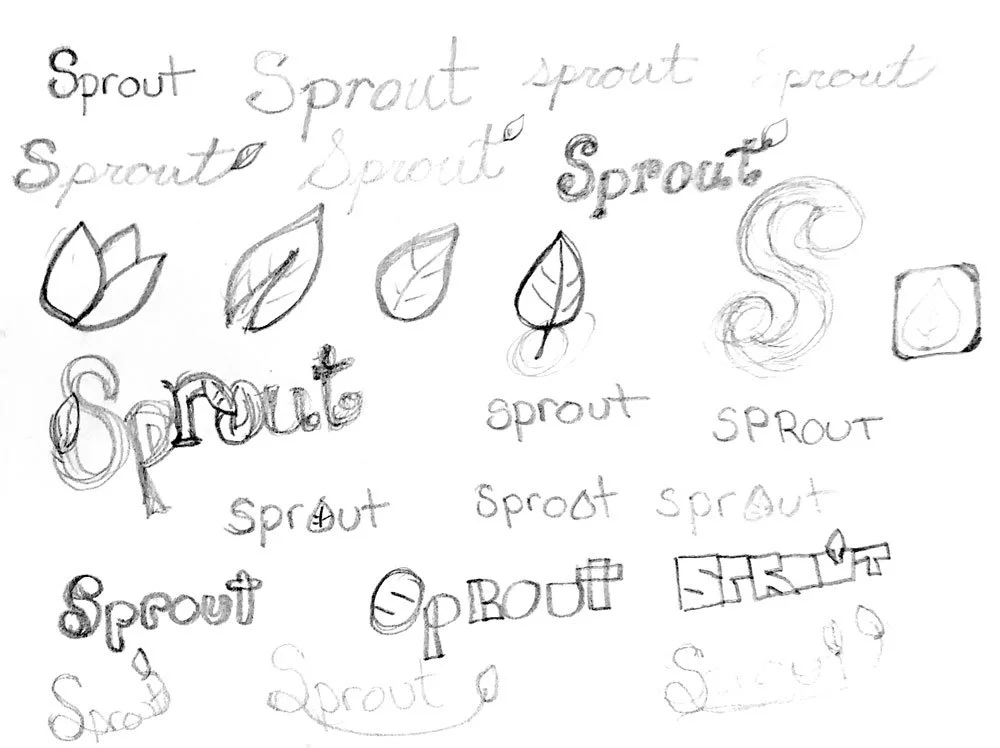 Sprout Sprout sprout Sprout
Sprout Sprout Sprout
S
Sprout
sprout
SPROUT
sprout sproot sprout
Sprout SpROUT SPROUT
Sprout Sprout Sprout